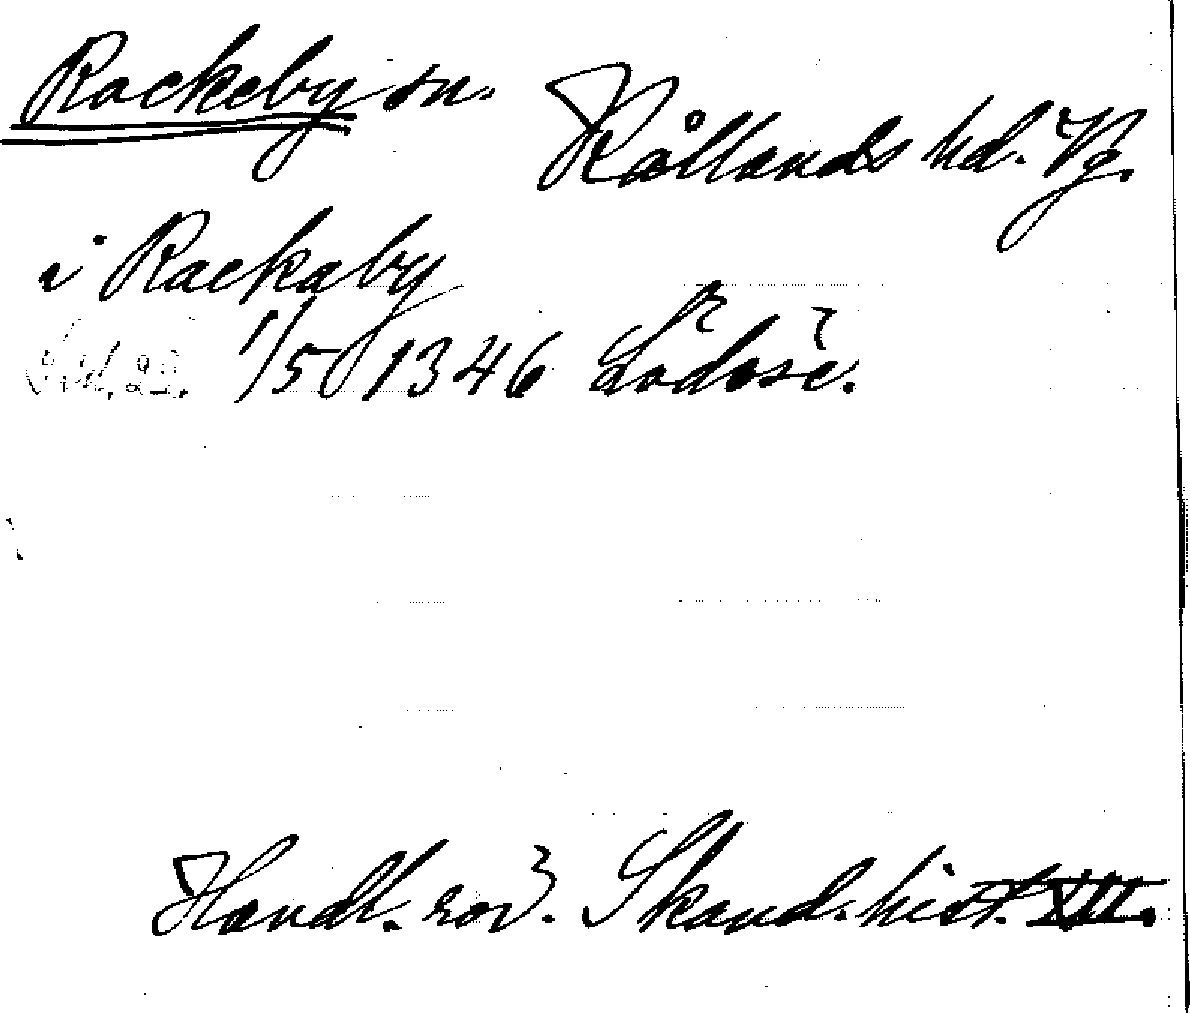 Rackeby sn. Kållands hd. Vg.
i Rackaby
1/5 1346 Lödöse.
Handl. rör. Skand. hist.